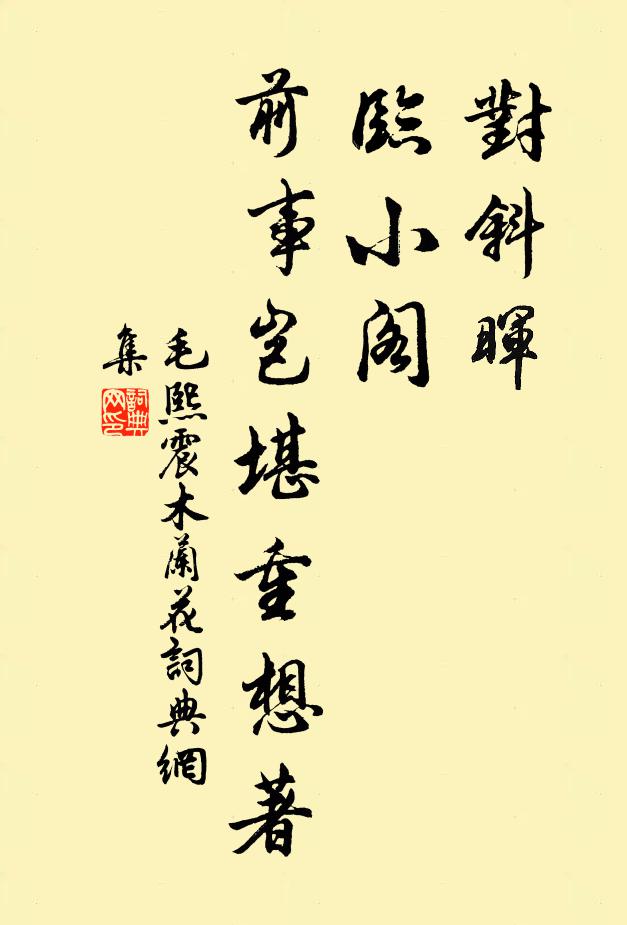 對斜暉
臨小阁
前事豈堪重想著
毛熙震木蘭花詞典網
集
詞典網印